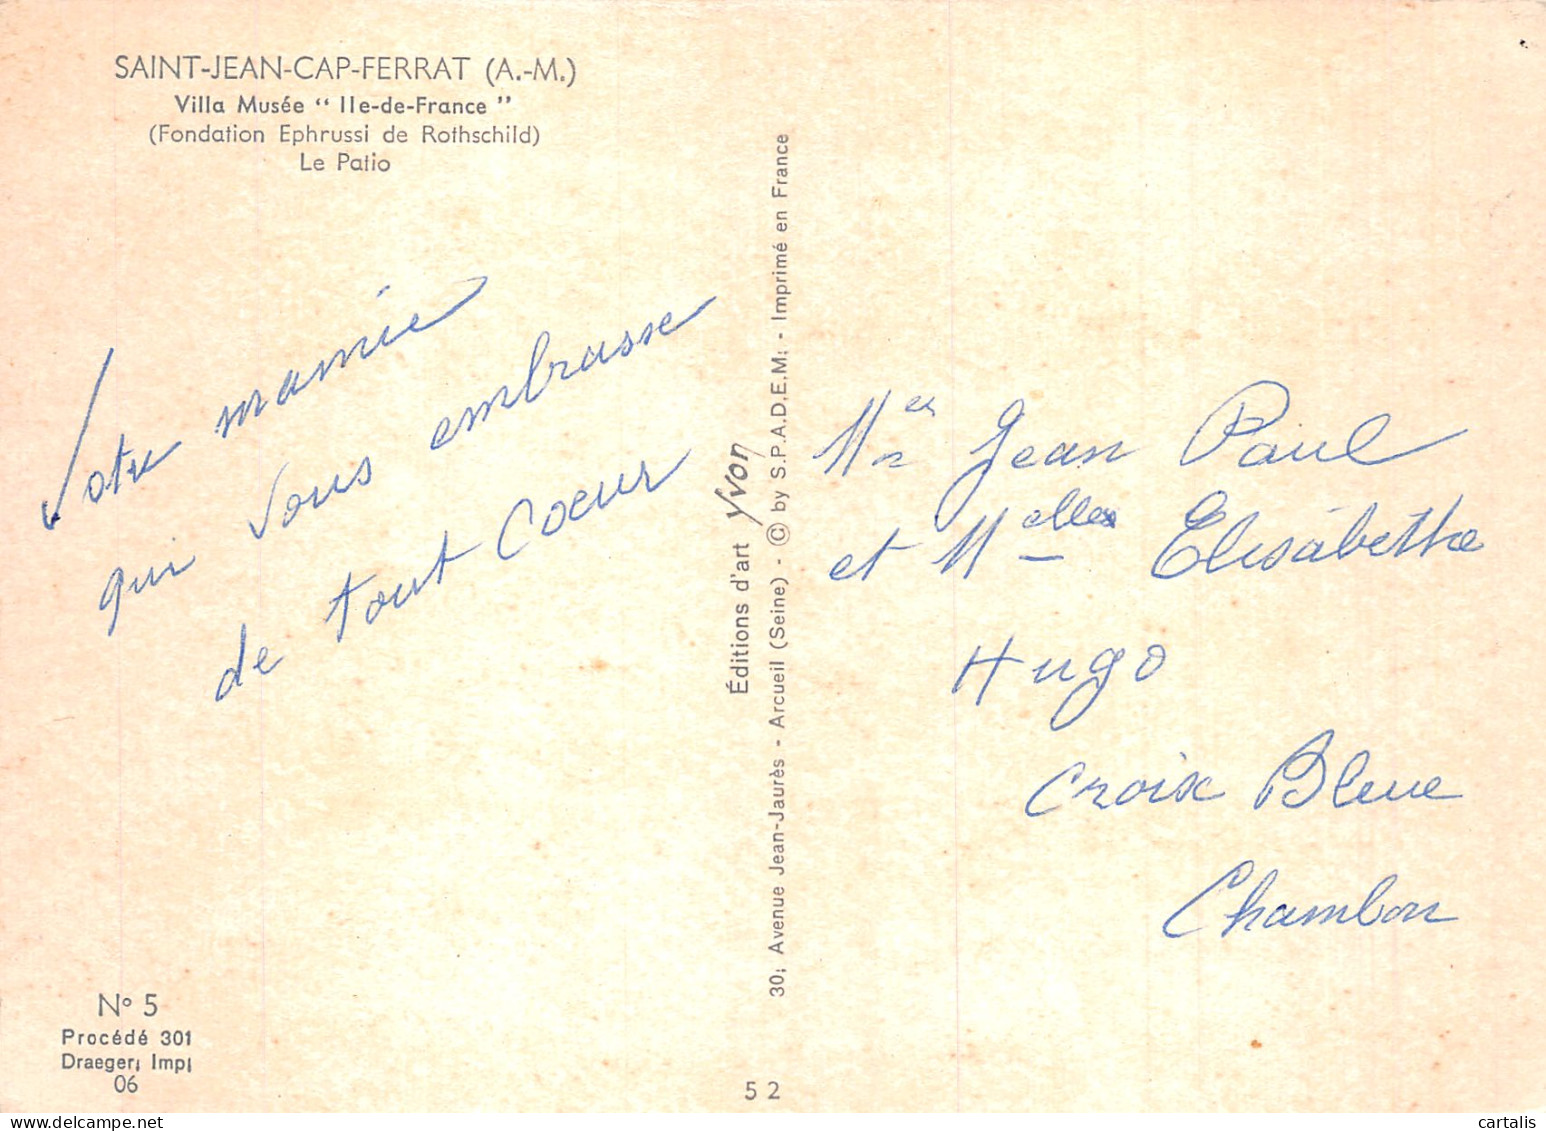 SAINT-JEAN-CAP-FERRAT (A.-M.)
Villa Musée “ Ile-de-France ”
(Fondation Ephrussi de Rothschild)
Le Patio
Votre mamie
qui vous embrasse
de tout coeur
Éditions d'art Yvon
30, Avenue Jean-Jaurès - Arcueil (Seine) - © by S.P.A.D.E.M. - Imprimé en France
Jean Paul
et Melles Elisabethe
Hugo
Croix Bleue
Chambon
N° 5
Procédé 301
Draeger, Imp,
06
52
delcampe.net
cartalis